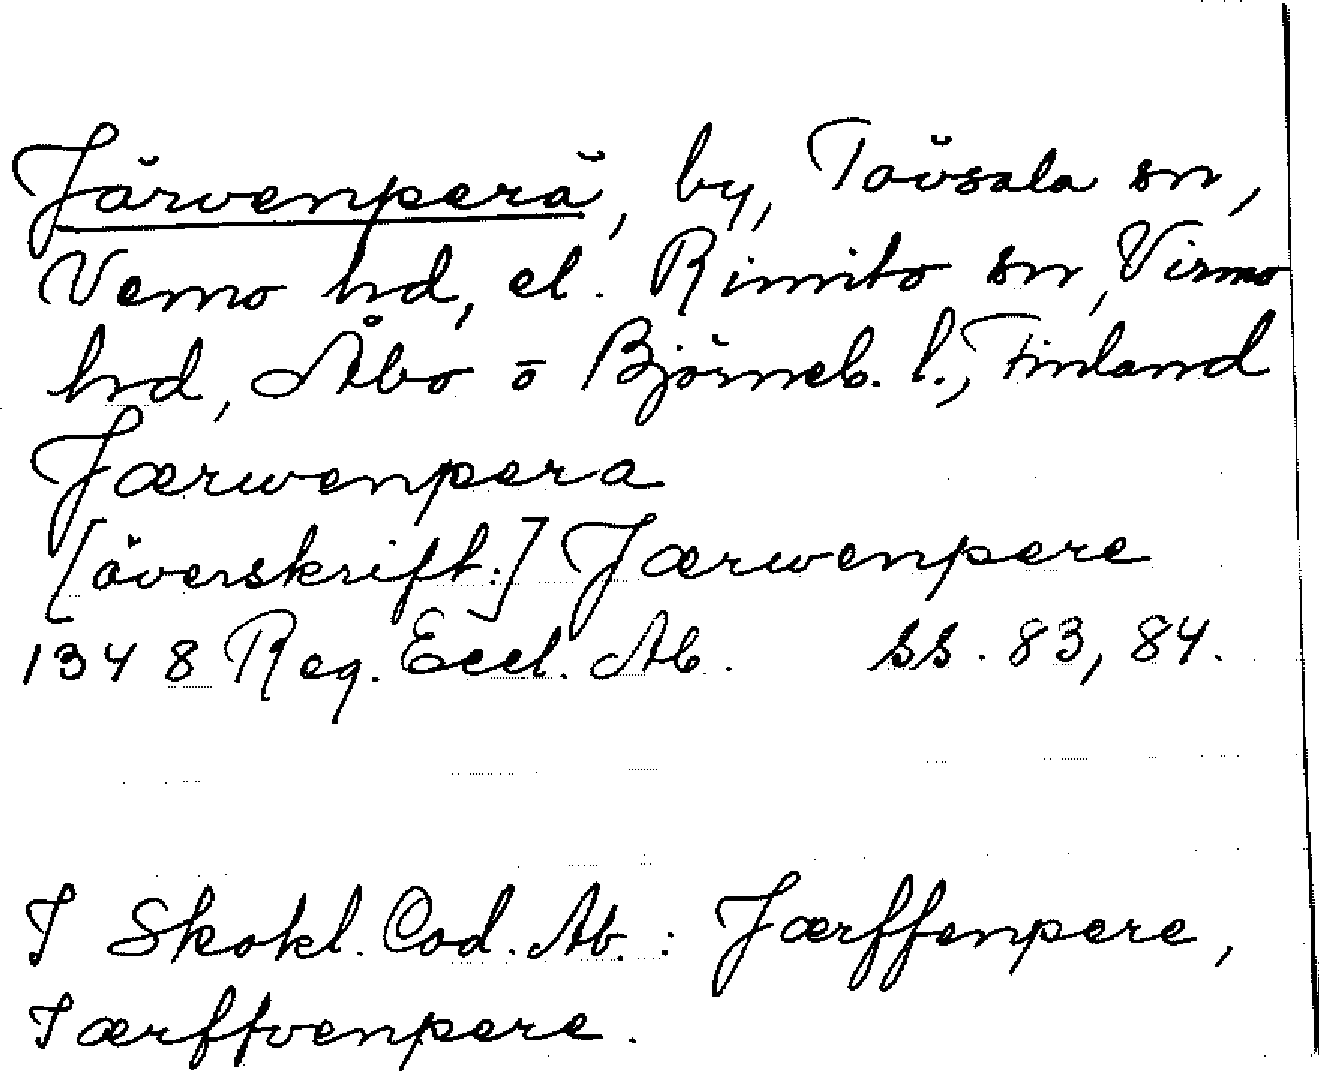 Järvenperä, by, Tövsala sn,
Vemo hd, el. Rimito sn, Virmo
hd, Åbo o Björneb. l., Finland
Jærwenpera
[överskrift:] Jærwenpere
1348 Reg. Eccl. Ab. ss. 83, 84.
I Skokl. Cod. Ab. : Jærffenpere,
Iærffvenpere.